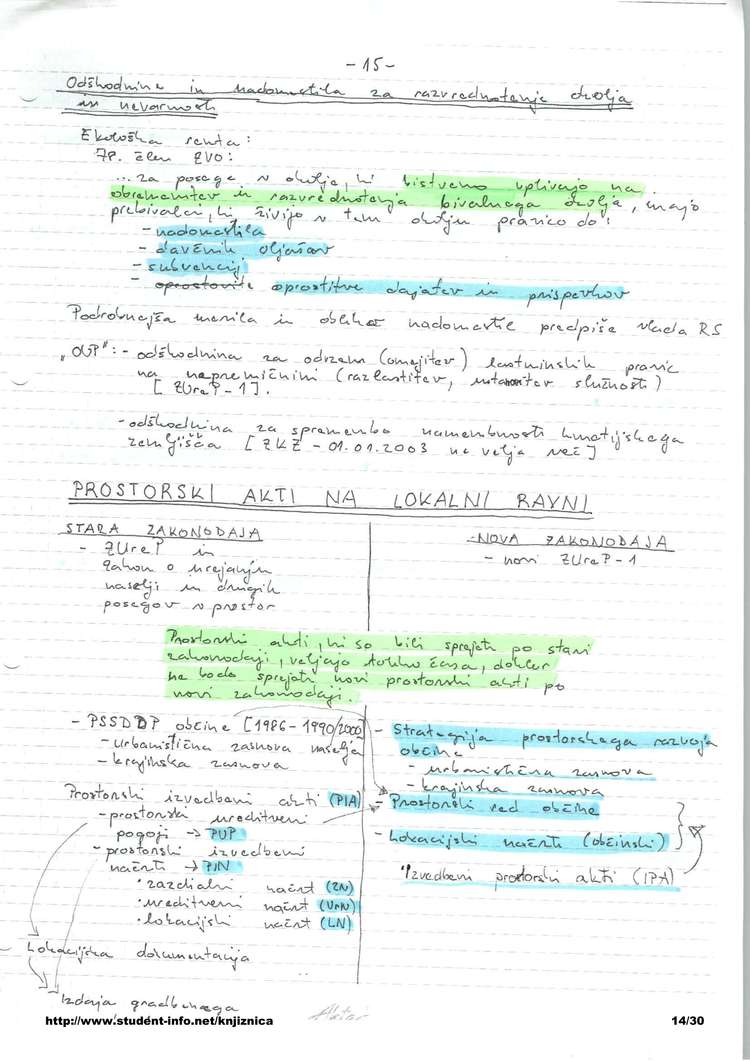 - 15 -
Odškodnine in nadomestila za razvrednotenje okolja
in nevarnosti
Ekološka renta:
78. člen ZVO:
... za posege v okolje, ki bistveno vplivajo na
obremenitev in razvrednotenja bivalnega okolja, imajo
prebivalci, ki živijo v tem okolju pravico do:
- nadomestila
- davčnih olajšav
- subvencij
- oprostitve dajatev in prispevkov
Podrobnejša merila in oblike nadomestil predpiše vlada RS
: - odškodnina za odvzem (omejitev) lastninskih pravic
na nepremičnini (razlastitev, ustanovitev služnosti)
[ZUreP-1].
- odškodnina za spremembo namembnosti kmetijskega
zemljišča [ZKZ - 01.01.2003 ne velja več]
PROSTORSKI AKTI NA LOKALNI RAVNI
STARA ZAKONODAJA
- ZUreP in
zakon o urejanju
naselij in drugih
posegov v prostor
NOVA ZAKONODAJA
- novi ZUreP-1
Prostorski akti, ki so bili sprejeti po stari
zakonodaji, veljajo toliko časa, dokler
ne bodo sprejeti novi prostorski akti po
novi zakonodaji.
- PSSDDP občine [1986-1990/2000]
- urbanistična zasnova naselja
- krajinska zasnova
Prostorski izvedbeni akti (PIA)
- prostorski ureditveni
pogoji → PUP
- prostorski izvedbeni
načrti → PIN
• zazidalni načrt (ZN)
• ureditveni načrt (UrN)
• lokacijski načrt (LN)
- Strategija prostorskega razvoja
občine
- urbanistična zasnova
- krajinska zasnova
- Prostorski red občine
- Lokacijski načrti (občinski)
"Izvedbeni prostorski akti (IPA)
Lokacijska dokumentacija
Izdaja gradbenega
http://www.student-info.net/knjiznica
14/30